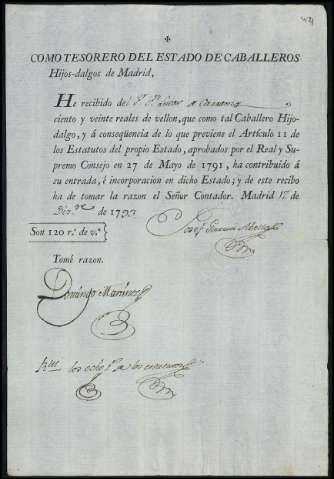 COMO TESORERO DEL ESTADO DE CABALLEROS
Hijos-dalgos de Madrid,
He recibido del
ciento y veinte reales de vellon, que como tal Caballero Hijo-
dalgo, y á conseqüencia de lo que previene el Artículo 11 de
los Estatutos del propio Estado, aprobados por el Real y Su-
premo Consejo en 27 de Mayo de 1791, ha contribuido á
su entrada, é incorporacion en dicho Estado; y de este recibo
ha de tomar la razon el Señor Contador. Madrid de
de 1793
Son 120 r.s de v.n
Tomé razon.
Domingo Martinez